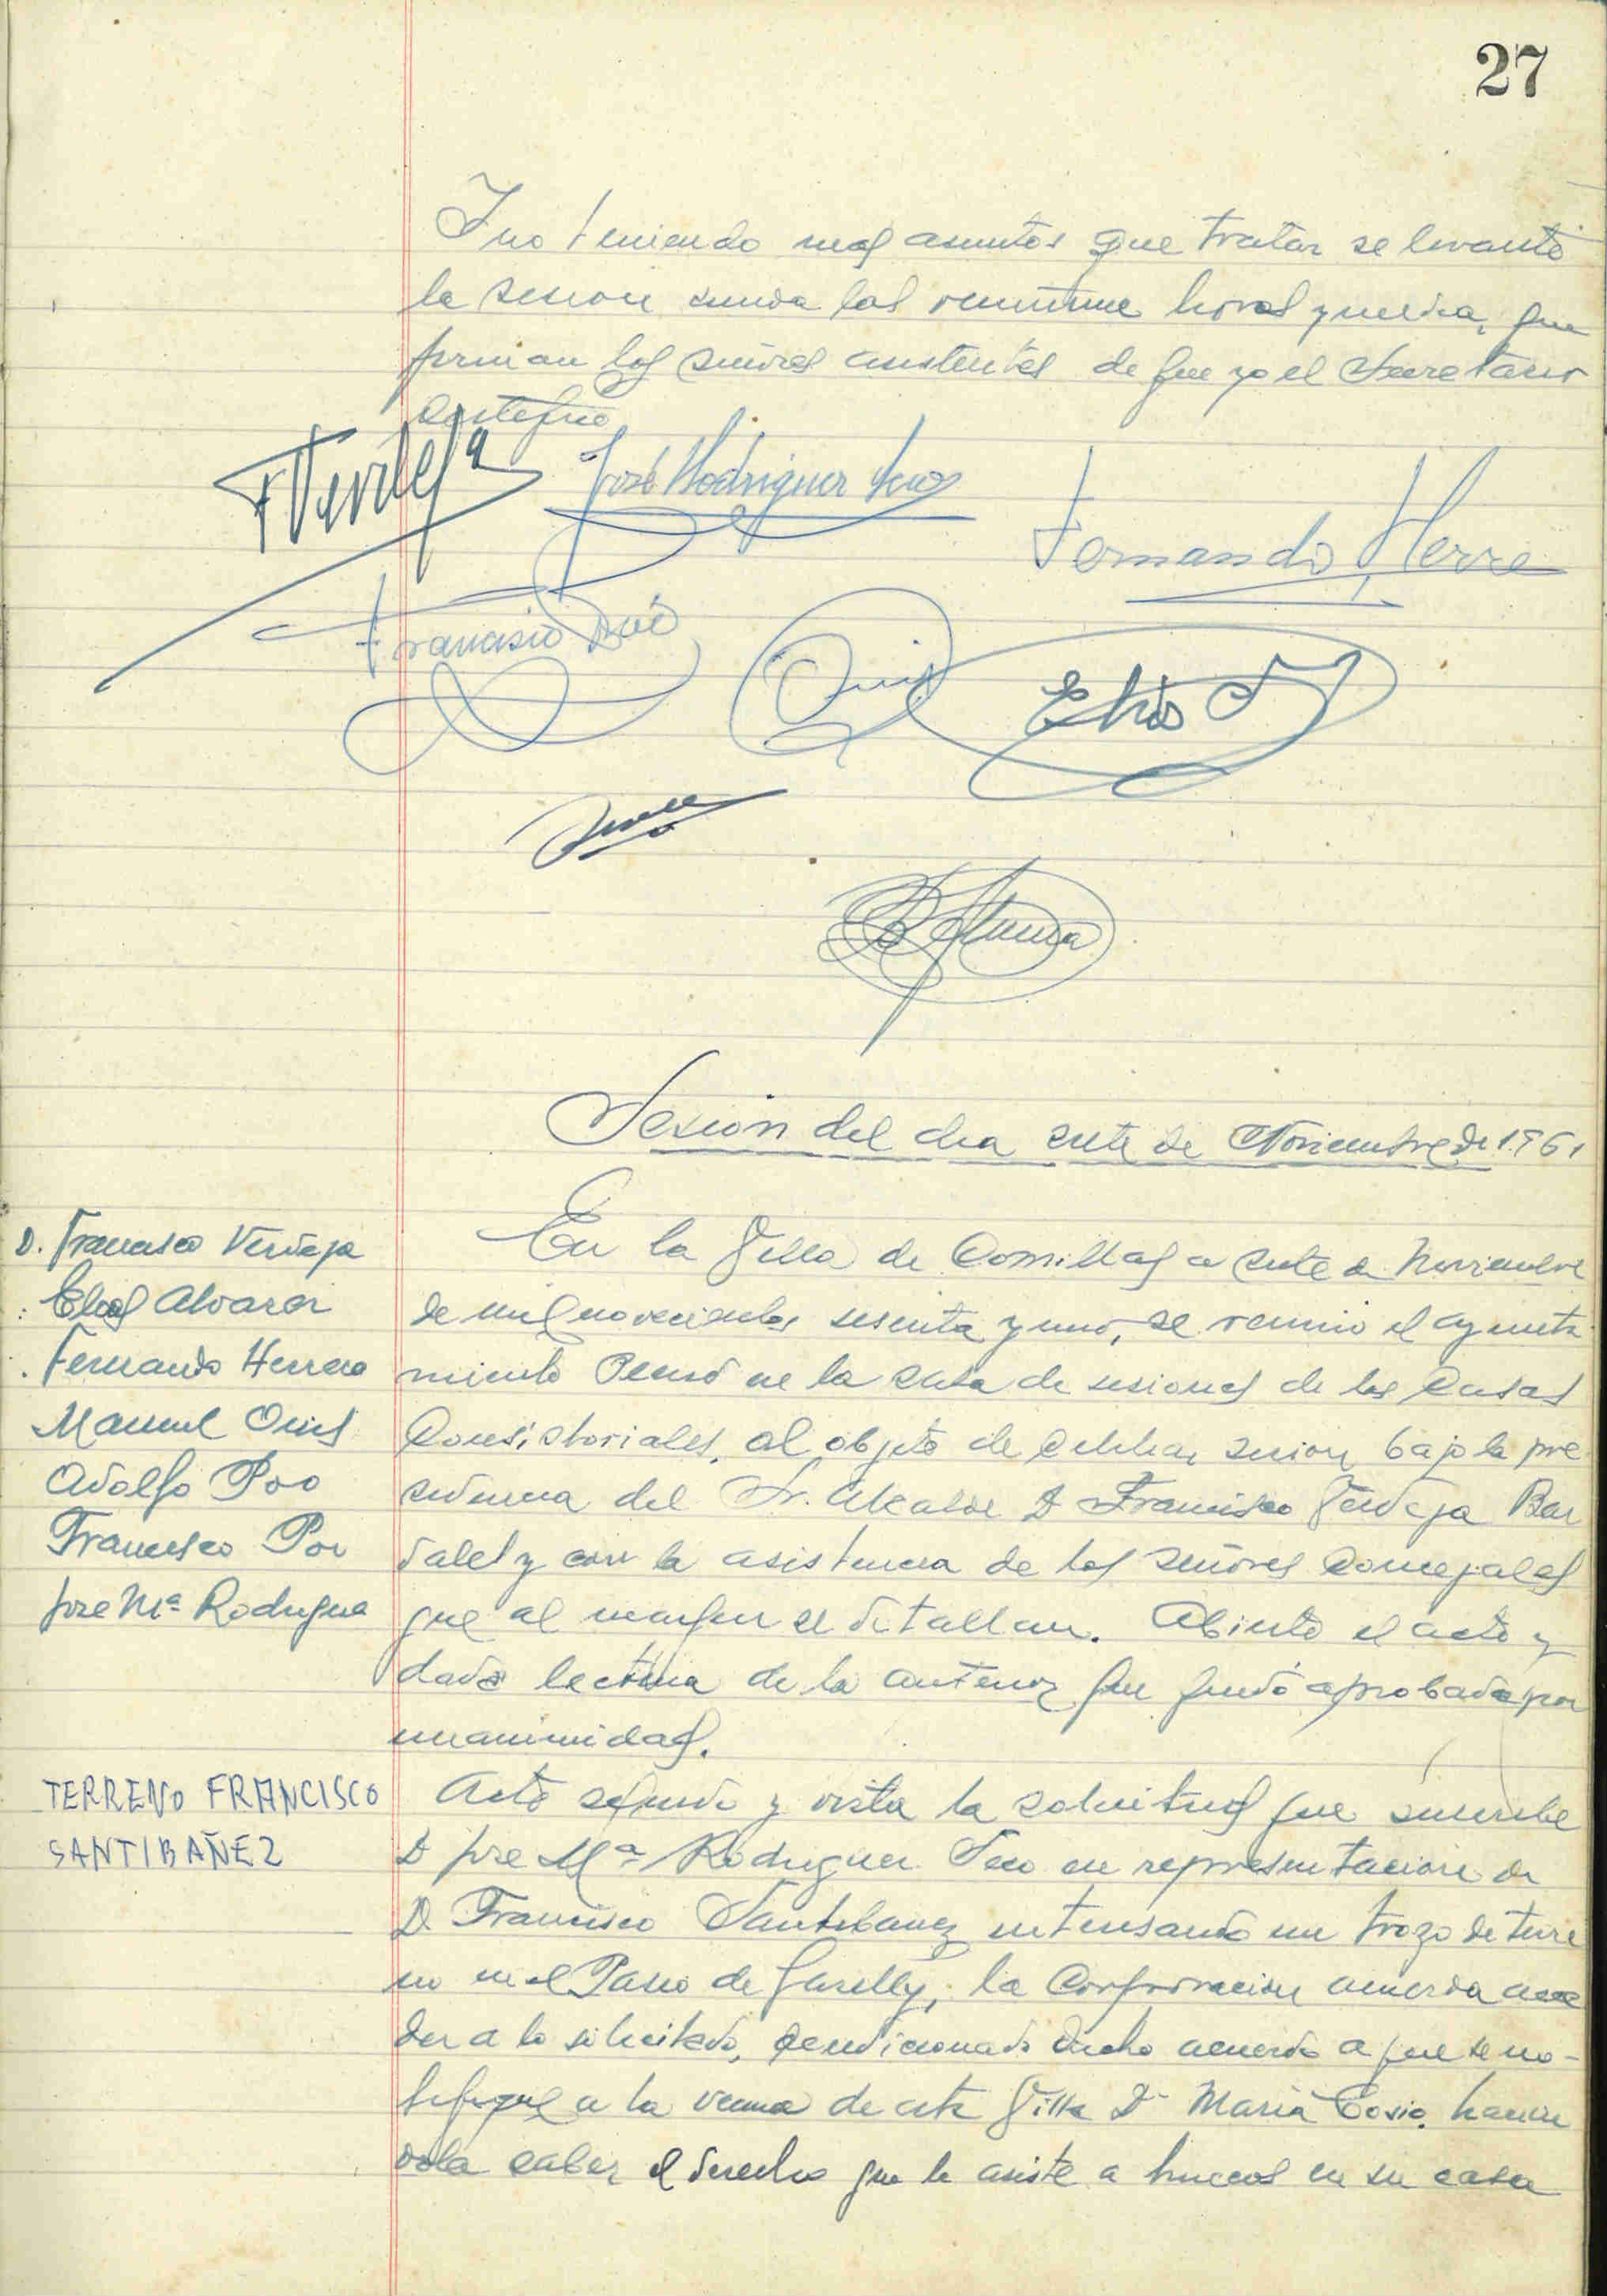 27
Y no teniendo mas asuntos que tratar se levantó
la sesion siendo las veintiuna horas y media, que
firman los señores asistentes de que yo el Secretario
certifico
F Verdeja
José Rodriguez Seco
Fernando Herre
Francisco Poó
Elias
Sesión del dia siete de Noviembre de 1961
D. Francisco Verdeja
Elias Alvarez
Fernando Herrero
Manuel Oris
Adolfo Poo
Francisco Poo
Jose Mª Rodriguez
En la Villa de Comillas a siete de Noviembre
de mil novecientos sesenta y uno, se reunio el ayunta
miento Pleno en la sala de sesiones de las Casas
Consistoriales, al objeto de celebrar sesion, bajo la pre
sidencia del Sr. Alcalde D Francisco Verdeja Bar
dalet y con la asistencia de los señores Concejales
que al margen se detallan. Abierto el acto y
dada lectura de la anterior que quedó aprobada por
unanimidad.
TERRENO FRANCISCO
SANTIBAÑEZ
Acto seguido y vista la solicitud que suscribe
D Jose Mª Rodriguez Seco en representacion de
D. Francisco Santibanez interesando un trozo de terre
no en el Paseo de Garelly, la Corporacion acuerda acce
der a lo solicitado, condicionado dicho acuerdo a que se no-
tifique a la vecina de esta Villa Dª Maria Cosio, hacien
dola saber el derecho que le asiste a huecos en su casa